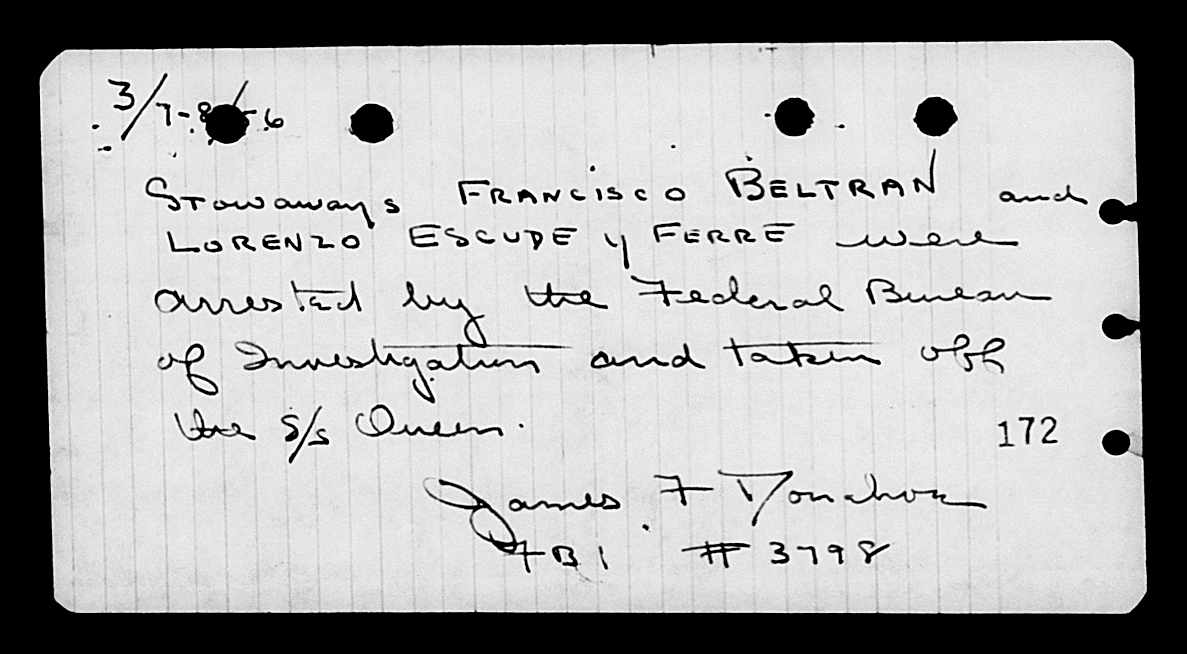 3/7-8/56
Stowaways FRANCISCO BELTRAN and
LORENZO ESCUDE y FERRE were
arrested by the Federal Bureau
of Investigation and taken off
the S/S Queen.
172
James F Donahoe
FBI # 3798